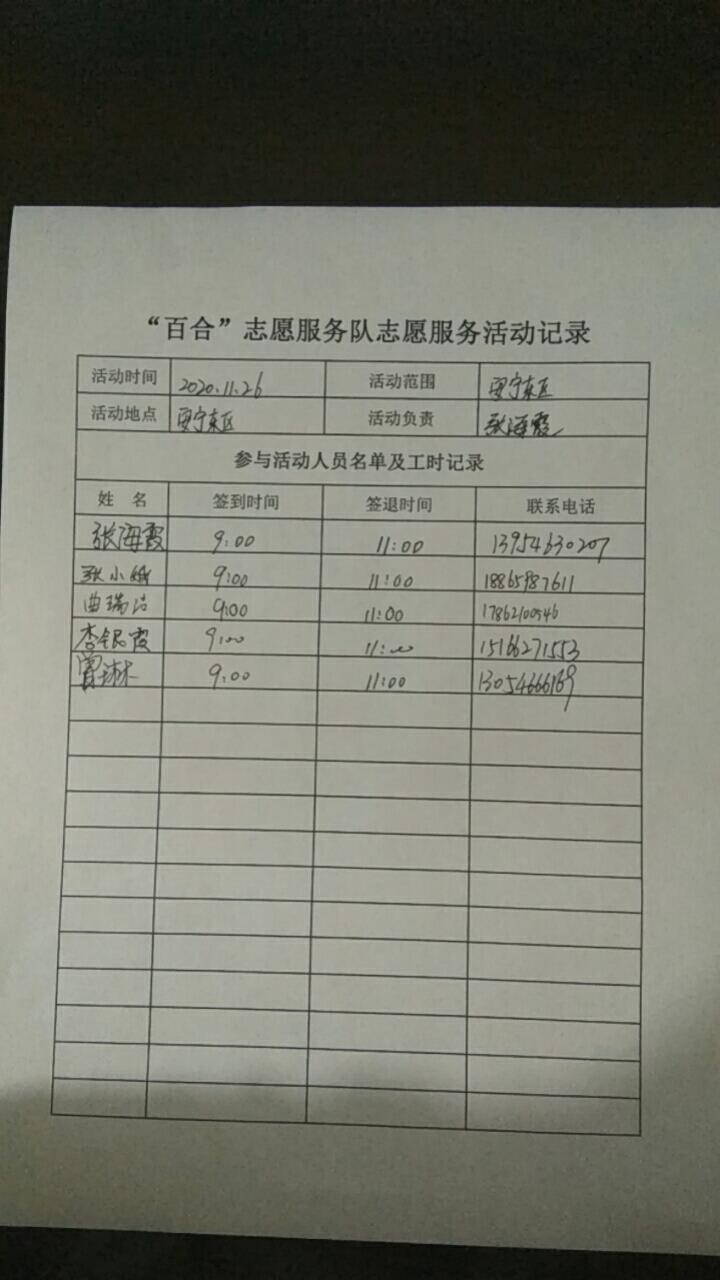 “百合”志愿服务队志愿服务活动记录
活动时间 2020.11.26 活动范围 安宁东区
活动地点 安宁东区 活动负责 张海霞
参与活动人员名单及工时记录
姓 名 签到时间 签退时间 联系电话
张海霞 9:00 11:00 13954630207
张小娥 9:00 11:00 18865987611
曲瑞洁 9:00 11:00 17862100546
李银霞 9:00 11:00 15166271553
曾琳 9:00 11:00 13054666169